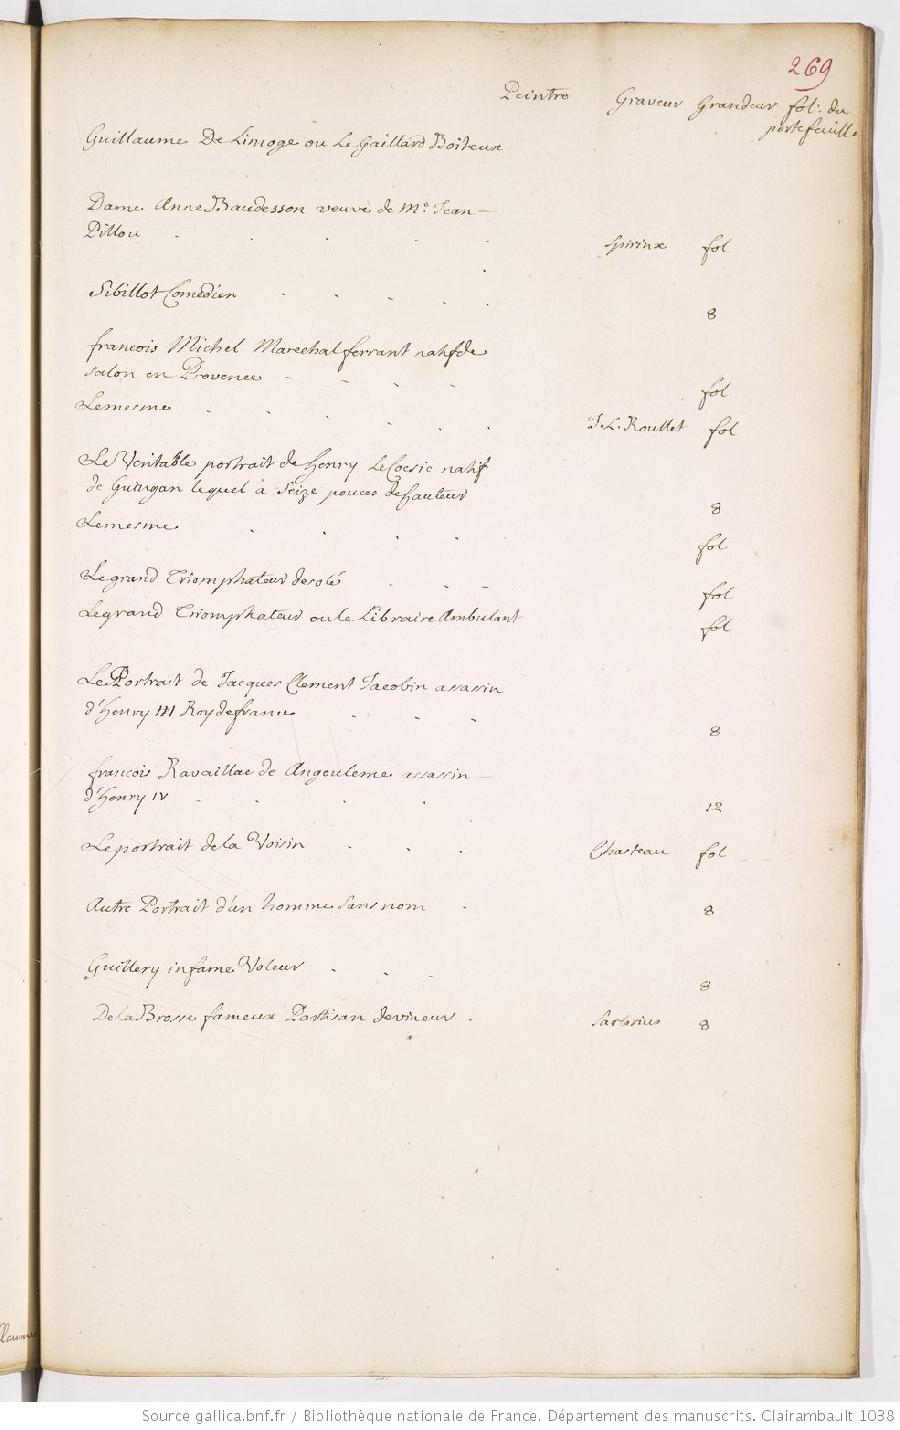 269
Peintre Graveur Grandeur fol. du
portefeuill.
Guillaume De Limoge ou Le Gaillard Boiteux
Dame Anne Baudesson veuve de Me Jean
Pillou Spirinx fol
Sibillot Comedien 8
francois Michel Marechal ferrant natif de
salon en Provence fol
Lemesme J. L. Roullet fol
Le Veritable portrait de henry Le Coesic natif
de Guingan lequel a seize pouces de hauteur 8
Lemesme fol
Le grand Triomphateur desolé fol
Le grand Triomphateur ou le Libraire Ambulant fol
Le Portrait de Jacques Clement Jacobin assassin
d'henry III Roy de france 8
francois Ravaillac de Angouleme assassin
d'henry IV 12
Le portrait de la Voisin Chasteau fol
Autre Portrait d'un homme sans nom 8
Guillery infame Voleur 8
De la Brosse fameux Partisan Sartorius 8
Source gallica.bnf.fr / Bibliothèque nationale de France. Département des manuscrits. Clairambault 1038